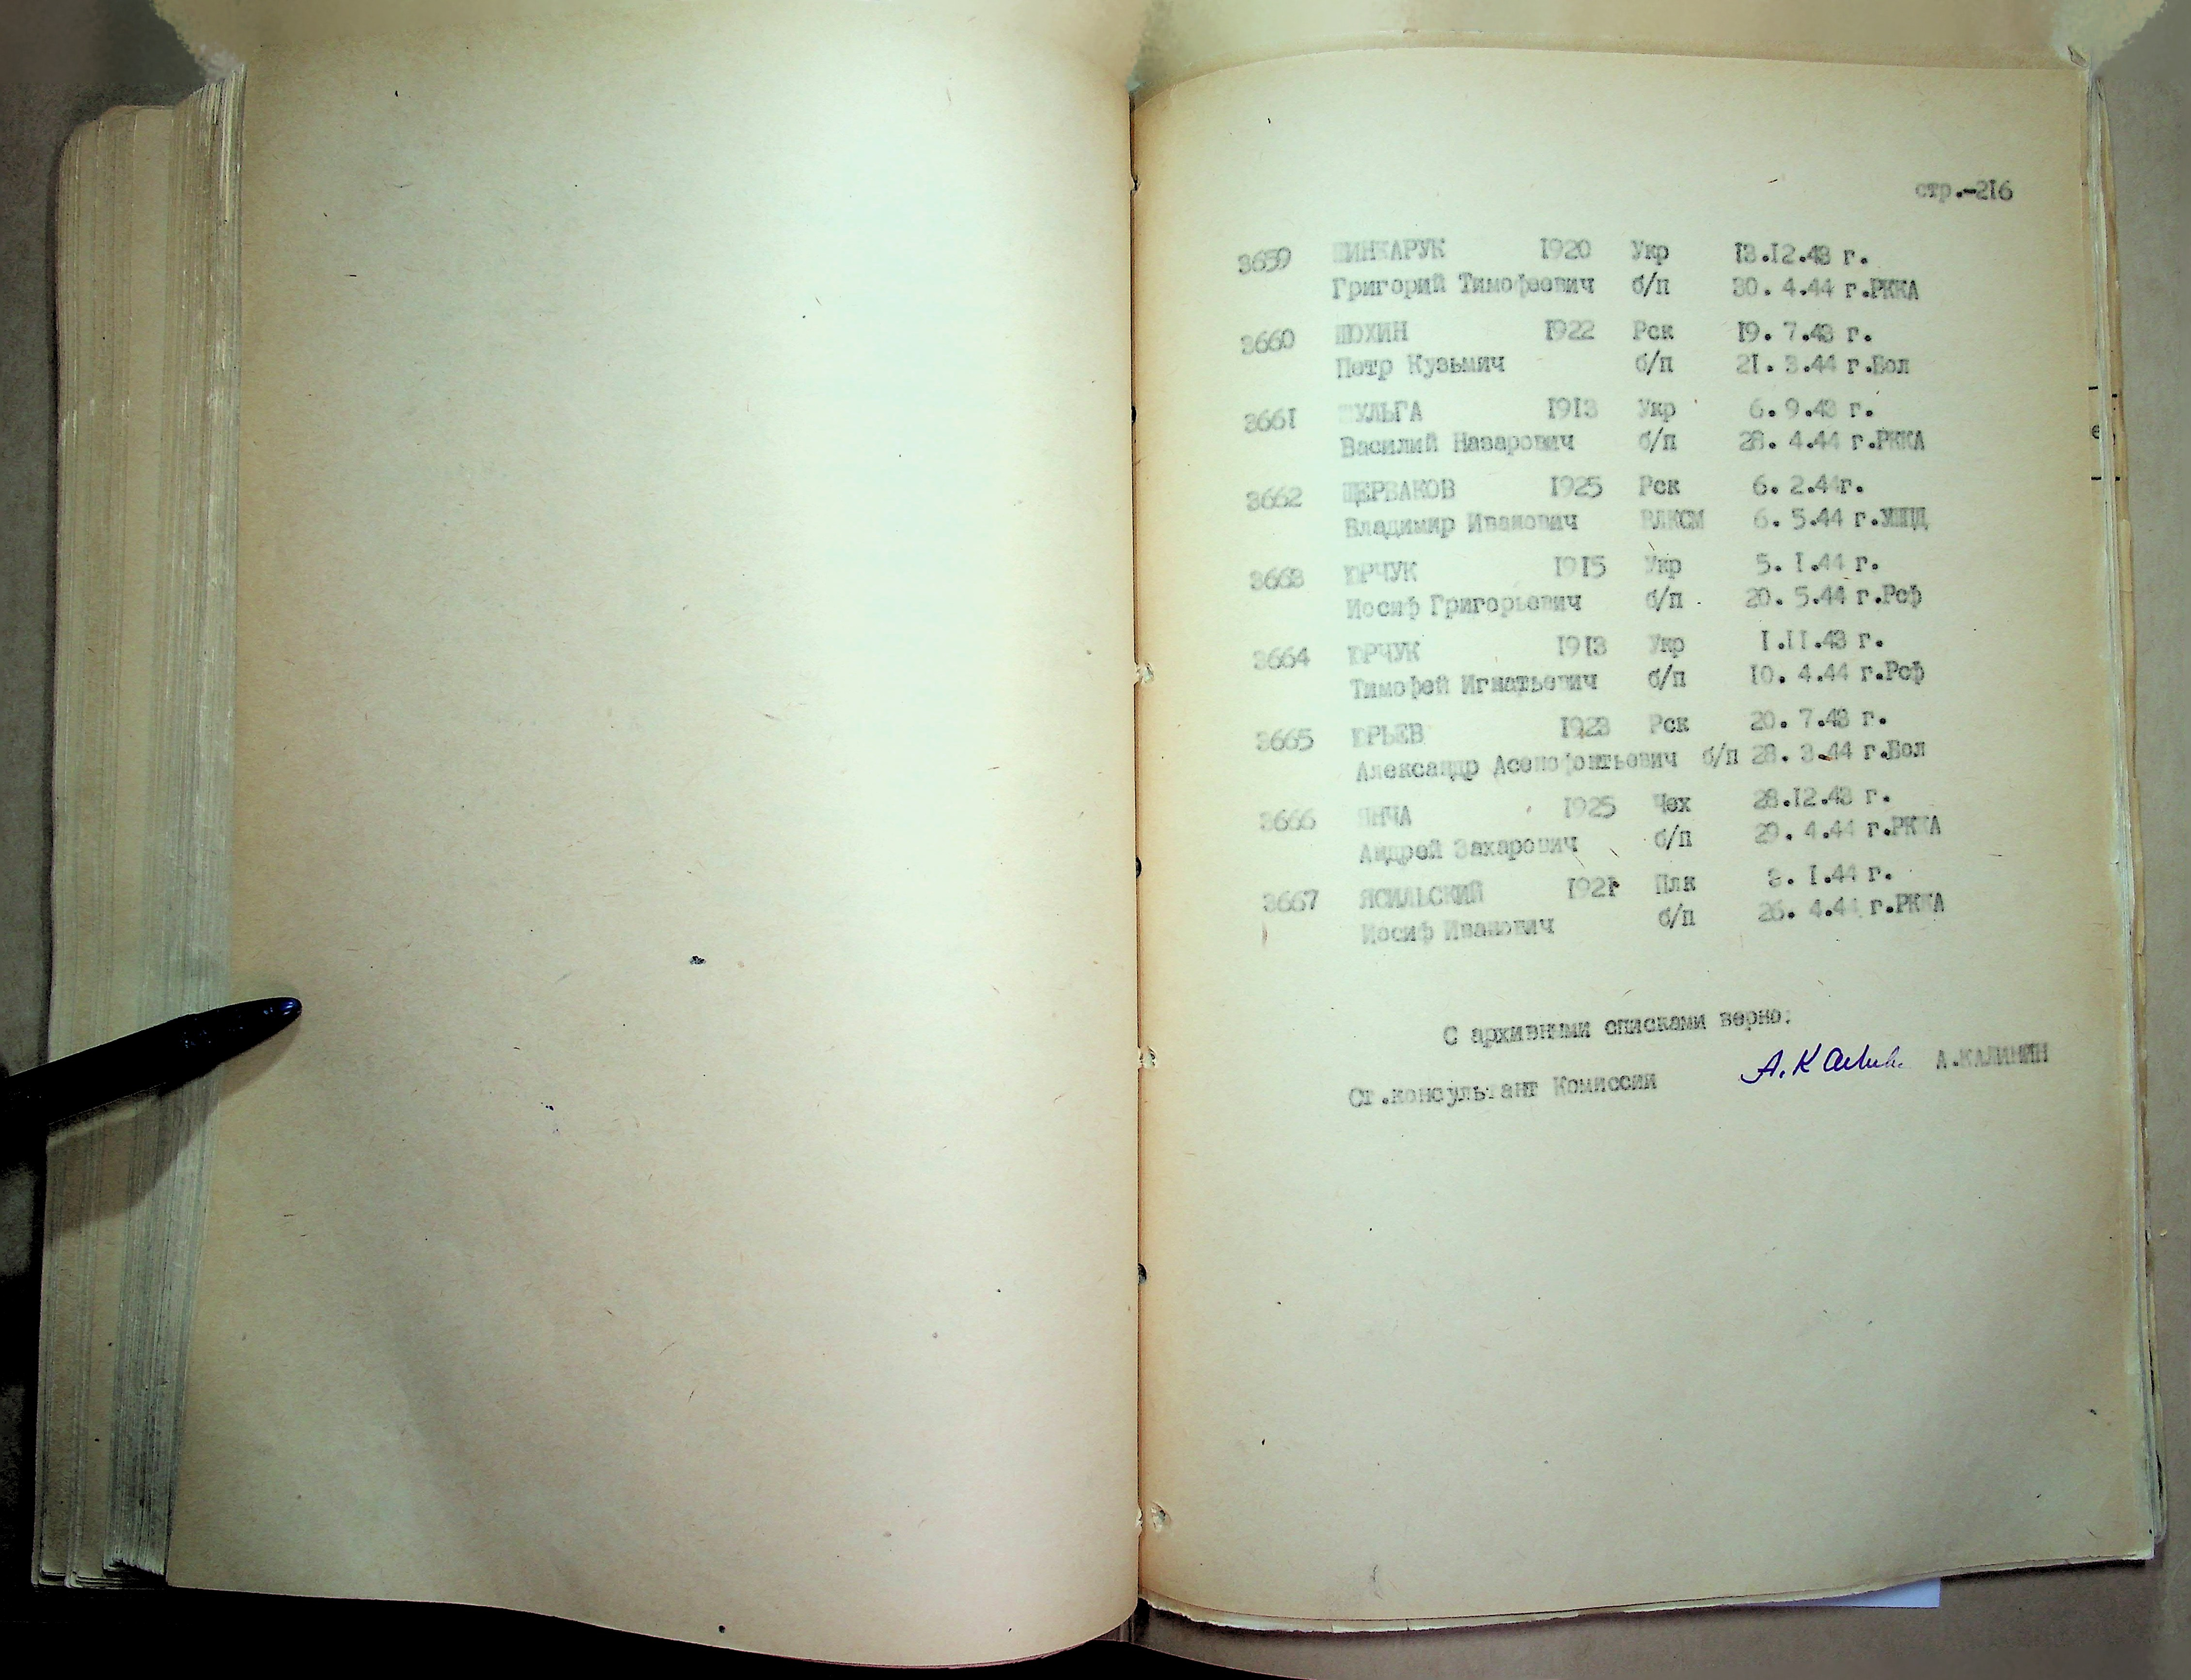 стр.-216
3659 ШИНКАРУК 1920 Укр 13.12.43 г.
Григорий Тимофеевич б/п 30. 4.44 г.РККА
3660 ШОХИН 1922 Рск 19. 7.43 г.
Петр Кузьмич б/п 21. 3.44 г.Вол
3661 ШУЛЬГА 1913 Укр 6. 9.43 г.
Василий Назарович б/п 28. 4.44 г.РККА
3662 ЩЕРБАКОВ 1925 Рск 6. 2.44г.
Владимир Иванович ВЛКСМ 6. 5.44 г.УШПД
3663 ЮРЧУК 1915 Укр 5. 1.44 г.
Иосиф Григорьевич б/п 20. 5.44 г.Рсф
3664 ЮРЧУК 1913 Укр 1.11.43 г.
Тимофей Игнатьевич б/п 10. 4.44 г.Рсф
3665 ЮРЬЕВ 1923 Рск 20. 7.43 г.
Александр Асенофонтьевич б/п 28. 3.44 г.Вол
3666 ЯНЧА 1925 Чех 28.12.43 г.
Андрей Захарович б/п 29. 4.44 г.РККА
3667 ЯСИЛЬСКИЙ 1921 Плк 3. 1.44 г.
Иосиф Иванович б/п 26. 4.44 г.РККА
С архивными списками верно:
Ст.консультант Комиссии А.КАЛИНИН